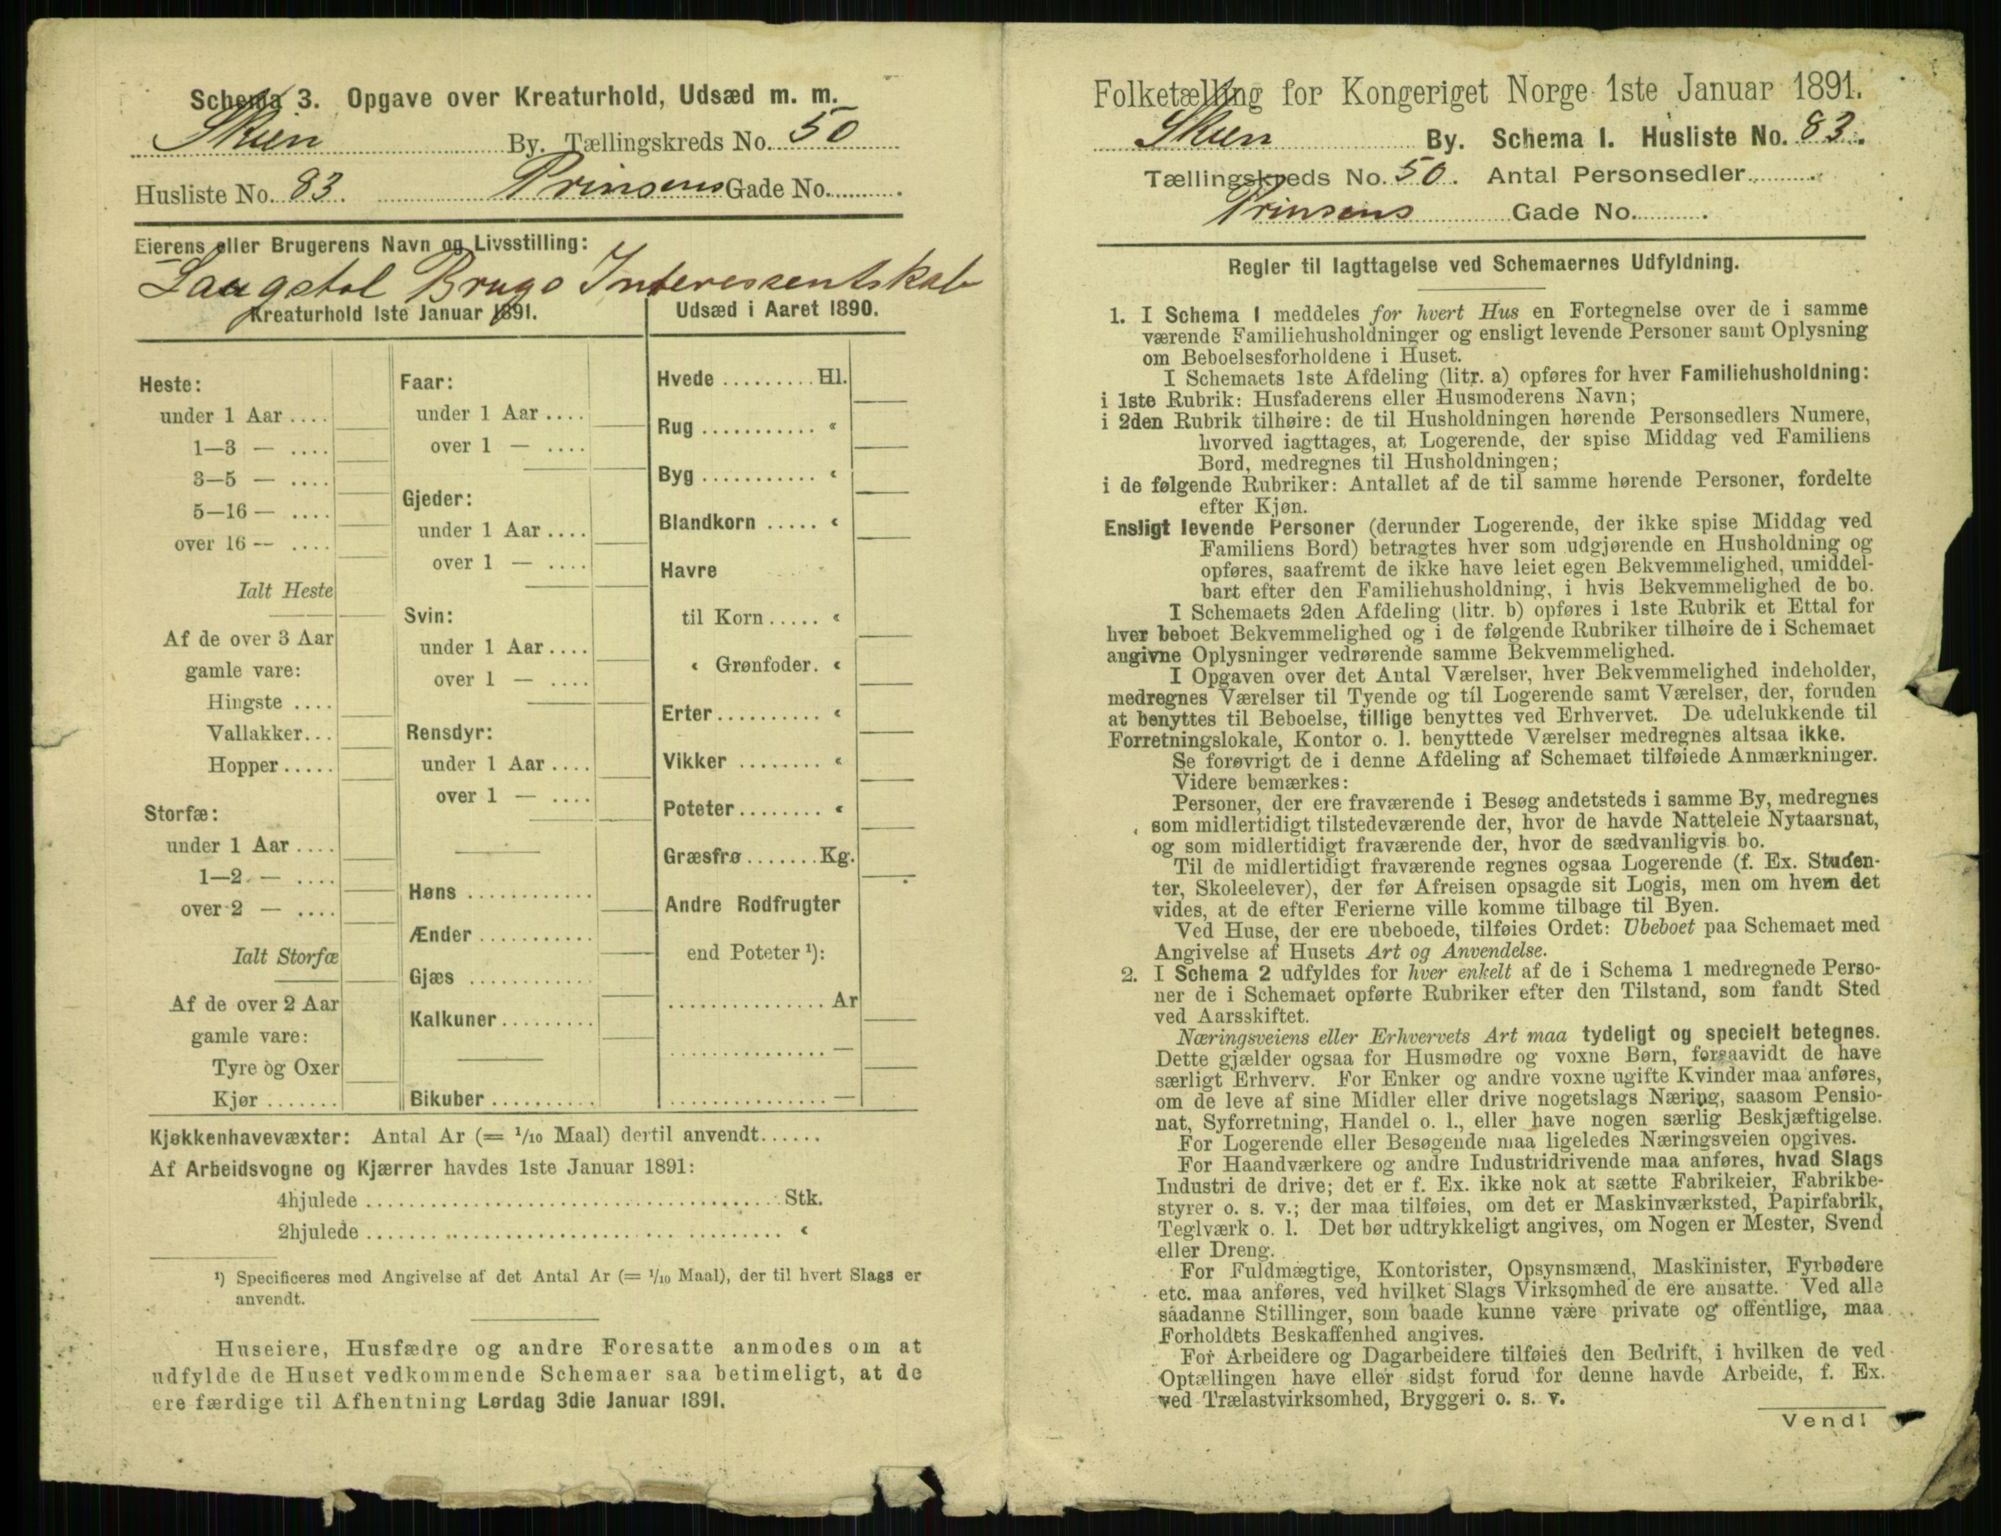 Schema 3. Opgave over Kreaturhold, Udsæd m. m.
Skien By. Tællingskreds No. 50
Husliste No. 83. Prinsens Gade No.
Eierens eller Brugerens Navn og Livsstilling:
Laugstol Brugs Interessentskab
Kreaturhold 1ste Januar 1891.
Heste:
under 1 Aar ....
1—3 — ....
3—5 — ....
5—16 — ....
over 16 — ....
Ialt Heste
Af de over 3 Aar
gamle vare:
Hingste ....
Vallakker...
Hopper.....
Storfæ:
under 1 Aar ....
1—2 — ....
over 2 — ....
Ialt Storfæ
Af de over 2 Aar
gamle vare:
Tyre og Oxer
Kjør .......
Faar:
under 1 Aar ....
over 1 — ....
Gjeder:
under 1 Aar ....
over 1 — ....
Svin:
under 1 Aar ....
over 1 — ....
Rensdyr:
under 1 Aar ....
over 1 — ....
Høns ............
Ænder ...........
Gjæs ............
Kalkuner .........
Bikuber ..........
Udsæd i Aaret 1890.
Hvede ......... Hl.
Rug ........... «
Byg ........... «
Blandkorn ..... «
Havre
til Korn ..... «
« Grønfoder. «
Erter .......... «
Vikker ........ «
Poteter ........ «
Græsfrø ....... Kg.
Andre Rodfrugter
end Poteter ¹):
............... Ar
............... —
............... —
Kjøkkenhavevæxter: Antal Ar (= 1/10 Maal) dertil anvendt ......
Af Arbeidsvogne og Kjærrer havdes 1ste Januar 1891:
4hjulede ........................................ Stk.
2hjulede ........................................ «
¹) Specificeres med Angivelse af det Antal Ar (= 1/10 Maal), der til hvert Slags er
anvendt.
Huseiere, Husfædre og andre Foresatte anmodes om at
udfylde de Huset vedkommende Schemaer saa betimeligt, at de
ere færdige til Afhentning Lørdag 3die Januar 1891.
Folketælling for Kongeriget Norge 1ste Januar 1891.
Skien By. Schema 1. Husliste No. 83.
Tællingskreds No. 50. Antal Personsedler .......
Prinsens Gade No. ........
Regler til Iagttagelse ved Schemaernes Udfyldning.
1. I Schema 1 meddeles for hvert Hus en Fortegnelse over de i samme
værende Familiehusholdninger og ensligt levende Personer samt Oplysning
om Beboelsesforholdene i Huset.
I Schemaets 1ste Afdeling (litr. a) opføres for hver Familiehusholdning:
i 1ste Rubrik: Husfaderens eller Husmoderens Navn;
i 2den Rubrik tilhøire: de til Husholdningen hørende Personsedlers Numere,
hvorved iagttages, at Logerende, der spise Middag ved Familiens
Bord, medregnes til Husholdningen;
i de følgende Rubriker: Antallet af de til samme hørende Personer, fordelte
efter Kjøn.
Ensligt levende Personer (derunder Logerende, der ikke spise Middag ved
Familiens Bord) betragtes hver som udgjørende en Husholdning og
opføres, saafremt de ikke have leiet egen Bekvemmelighed, umiddel-
bart efter den Familiehusholdning, i hvis Bekvemmelighed de bo.
I Schemaets 2den Afdeling (litr. b) opføres i 1ste Rubrik et Ettal for
hver beboet Bekvemmelighed og i de følgende Rubriker tilhøire de i Schemaet
angivne Oplysninger vedrørende samme Bekvemmelighed.
I Opgaven over det Antal Værelser, hver Bekvemmelighed indeholder,
medregnes Værelser til Tyende og til Logerende samt Værelser, der, foruden
at benyttes til Beboelse, tillige benyttes ved Erhvervet. De udelukkende til
Forretningslokale, Kontor o. l. benyttede Værelser medregnes altsaa ikke.
Se forøvrigt de i denne Afdeling af Schemaet tilføiede Anmærkninger.
Videre bemærkes:
Personer, der ere fraværende i Besøg andetsteds i samme By, medregnes
som midlertidigt tilstedeværende der, hvor de havde Natteleie Nytaarsnat,
og som midlertidigt fraværende der, hvor de sædvanligvis bo.
Til de midlertidigt fraværende regnes ogsaa Logerende (f. Ex. Studen-
ter, Skoleelever), der før Afreisen opsagde sit Logis, men om hvem det
vides, at de efter Ferierne ville komme tilbage til Byen.
Ved Huse, der ere ubeboede, tilføies Ordet: Ubeboet paa Schemaet med
Angivelse af Husets Art og Anvendelse.
2. I Schema 2 udfyldes for hver enkelt af de i Schema 1 medregnede Perso-
ner de i Schemaet opførte Rubriker efter den Tilstand, som fandt Sted
ved Aarsskiftet.
Næringsveiens eller Erhvervets Art maa tydeligt og specielt betegnes.
Dette gjælder ogsaa for Husmødre og voxne Børn, forsaavidt de have
særligt Erhverv. For Enker og andre voxne ugifte Kvinder maa anføres,
om de leve af sine Midler eller drive nogetslags Næring, saasom Pensio-
nat, Syforretning, Handel o. l., eller have nogen særlig Beskjæftigelse.
For Logerende eller Besøgende maa ligeledes Næringsveien opgives.
For Haandværkere og andre Industridrivende maa anføres, hvad Slags
Industri de drive; det er f. Ex. ikke nok at sætte Fabrikeier, Fabrikbe-
styrer o. s. v.; der maa tilføies, om det er Maskinværksted, Papirfabrik,
Teglværk o. l. Det bør udtrykkeligt angives, om Nogen er Mester, Svend
eller Dreng.
For Fuldmægtige, Kontorister, Opsynsmænd, Maskinister, Fyrbødere
etc. maa anføres, ved hvilket Slags Virksomhed de ere ansatte. Ved alle
saadanne Stillinger, som baade kunne være private og offentlige, maa
Forholdets Beskaffenhed angives.
For Arbeidere og Dagarbeidere tilføies den Bedrift, i hvilken de ved
Optællingen have eller sidst forud for denne havde Arbeide, f. Ex.
ved Trælastvirksomhed, Bryggeri o. s. v.
Vend!